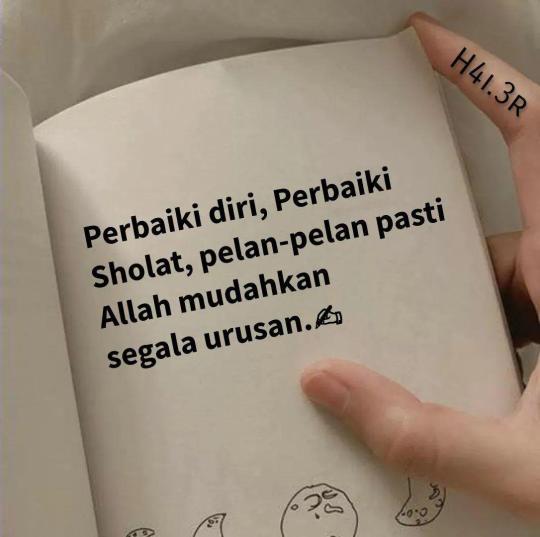 H4I.3R
Perbaiki diri, Perbaiki
Sholat, pelan-pelan pasti
Allah mudahkan
segala urusan.✍